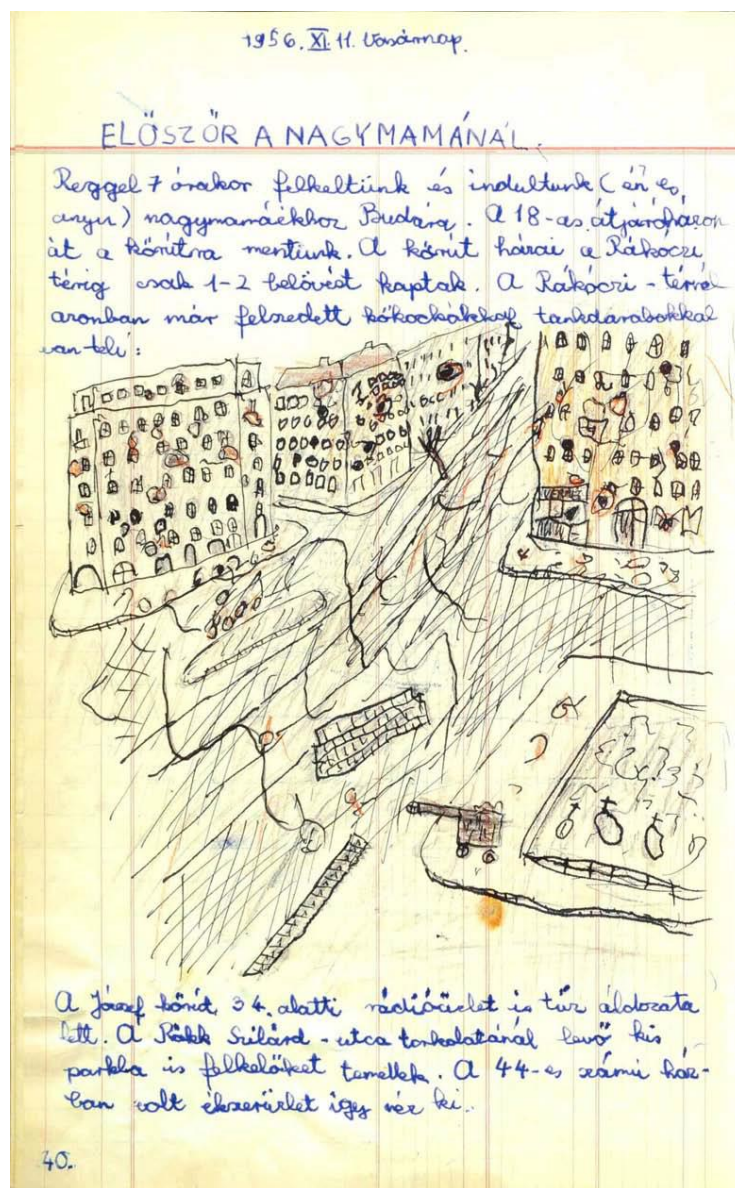 1956. XI. 11. Vasárnap.
ELŐSZÖR A NAGYMAMÁNÁL.
Reggel 7 órakor felkeltünk és indultunk (én és
anyu) nagymamáékhoz Budára. A 18-as átjáróházon
át a körútra mentünk. A körút házai a Rákóczi
térig csak 1-2 belövést kaptak. A Rákóczi-térnél
azonban már felszedett kőkockákkal tankdarabokkal
van teli:
A József körút 34. alatti rádióüzlet is tűz áldozata
lett. A Rökk Szilárd-utca torkolatánál levő kis
parkba is felkelőket temettek. A 44-es számú ház-
ban volt ékszerüzlet így néz ki..
40.